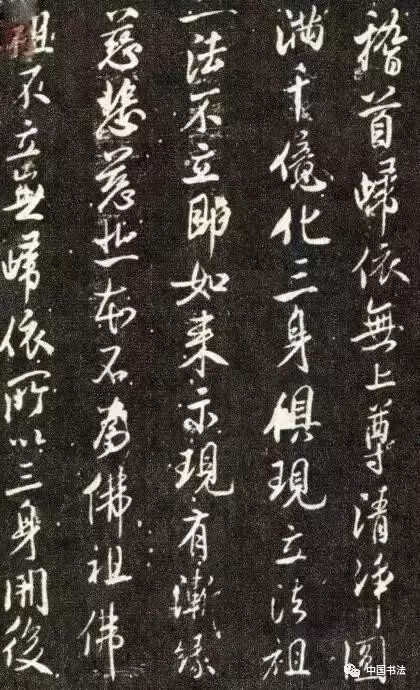 稽首歸依無上尊清淨圓
滿千億化三身俱現立法祖
一法不立即如来示現有漸緣
慈悲慈悲本佛祖佛
祖不立無歸依所以三身開後
中国书法